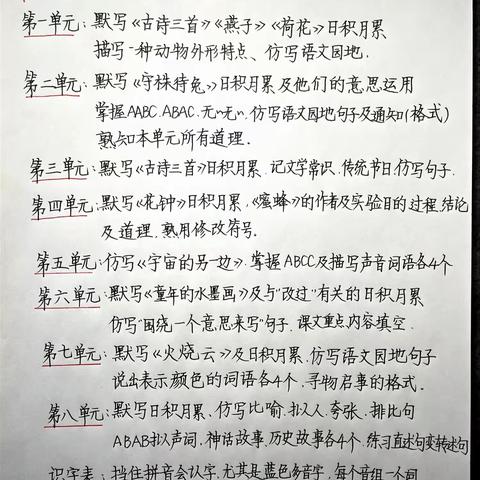 第一单元:默写《古诗三首》《燕子》《荷花》日积月累
描写一种动物外形特点、仿写语文园地.
第二单元:默写《守株待兔》日积月累及他们的意思运用
掌握AABC.ABAC.无~无~.仿写语文园地句子及通知(格式)
熟知本单元所有道理.
第三单元:默写《古诗三首》日积月累.记文学常识.传统节日.仿写句子.
第四单元:默写《花钟》日积月累,《蜜蜂》的作者及实验目的过程.结论
及道理.熟用修改符号.
第五单元:仿写《宇宙的另一边》.掌握ABCC及描写声音词语各4个
第六单元:默写《童年的水墨画》及与"改过"有关的日积月累
仿写"围绕一个意思来写"句子.课文重点内容填空.
第七单元:默写《火烧云》及日积月累.仿写语文园地句子
说出表示颜色的词语各4个.寻物启事的格式.
第八单元:默写日积月累、仿写比喻.拟人.夸张.排比句
ABAB拟声词.神话故事.历史故事各4个.练习直述句变转述句
识字表:挡住拼音会认字.尤其是蓝色多音字,每个音组一个词